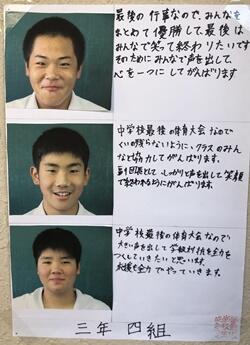 最後の行事なので、みんなを
まとめて優勝して最後は
みんなで笑って終わりたいです
そのためにみんなで声を出して、
心を一つにしてがんばります
中学校最後の体育大会なので
くいの残らないように、クラスのみん
なと協力してがんばります。
副団長として、しっかりと声を出して笑顔
で終われるようにがんばります。
中学校最後の体育大会なので
大きい声を出して学級対抗を全力を
つくしていきたいと思います。
応援も全力でやっていきます。
三年 四組